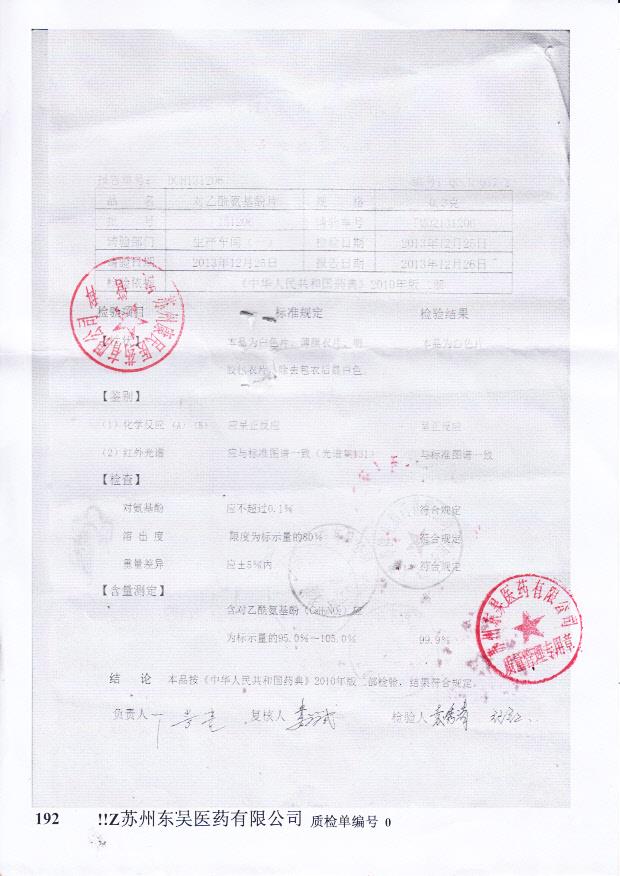 报告单号：
品 名 对乙酰氨基酚片 规 格 0.3克
批 号 131206
请验部门 生产车间 检验日期 2013年12月25日
请验日期 2013年12月25日 报告日期 2013年12月26日
检验依据 《中华人民共和国药典》2010年版二部
检验项目 标准规定 检验结果
本品为白色片、薄膜衣片、明 本品为白色片
胶包衣片，除去包衣后显白色。
【鉴别】
（1）化学反应（A）（B） 应呈正反应 呈正反应
（2）红外光谱 应与标准图谱一致（光谱集131） 与标准图谱一致
【检查】
对氨基酚 应不超过0.1% 符合规定
溶 出 度 限度为标示量的80% 符合规定
重量差异 应±5%内 符合规定
【含量测定】
含对乙酰氨基酚（C₈H₉NO₂）应
为标示量的95.0%～105.0% 99.9%
结 论 本品按《中华人民共和国药典》2010年版二部检验，结果符合规定。
负责人 复核人 检验人
苏州东吴医药有限公司
质量管理专用章
192 !!Z苏州东吴医药有限公司 质检单编号 0